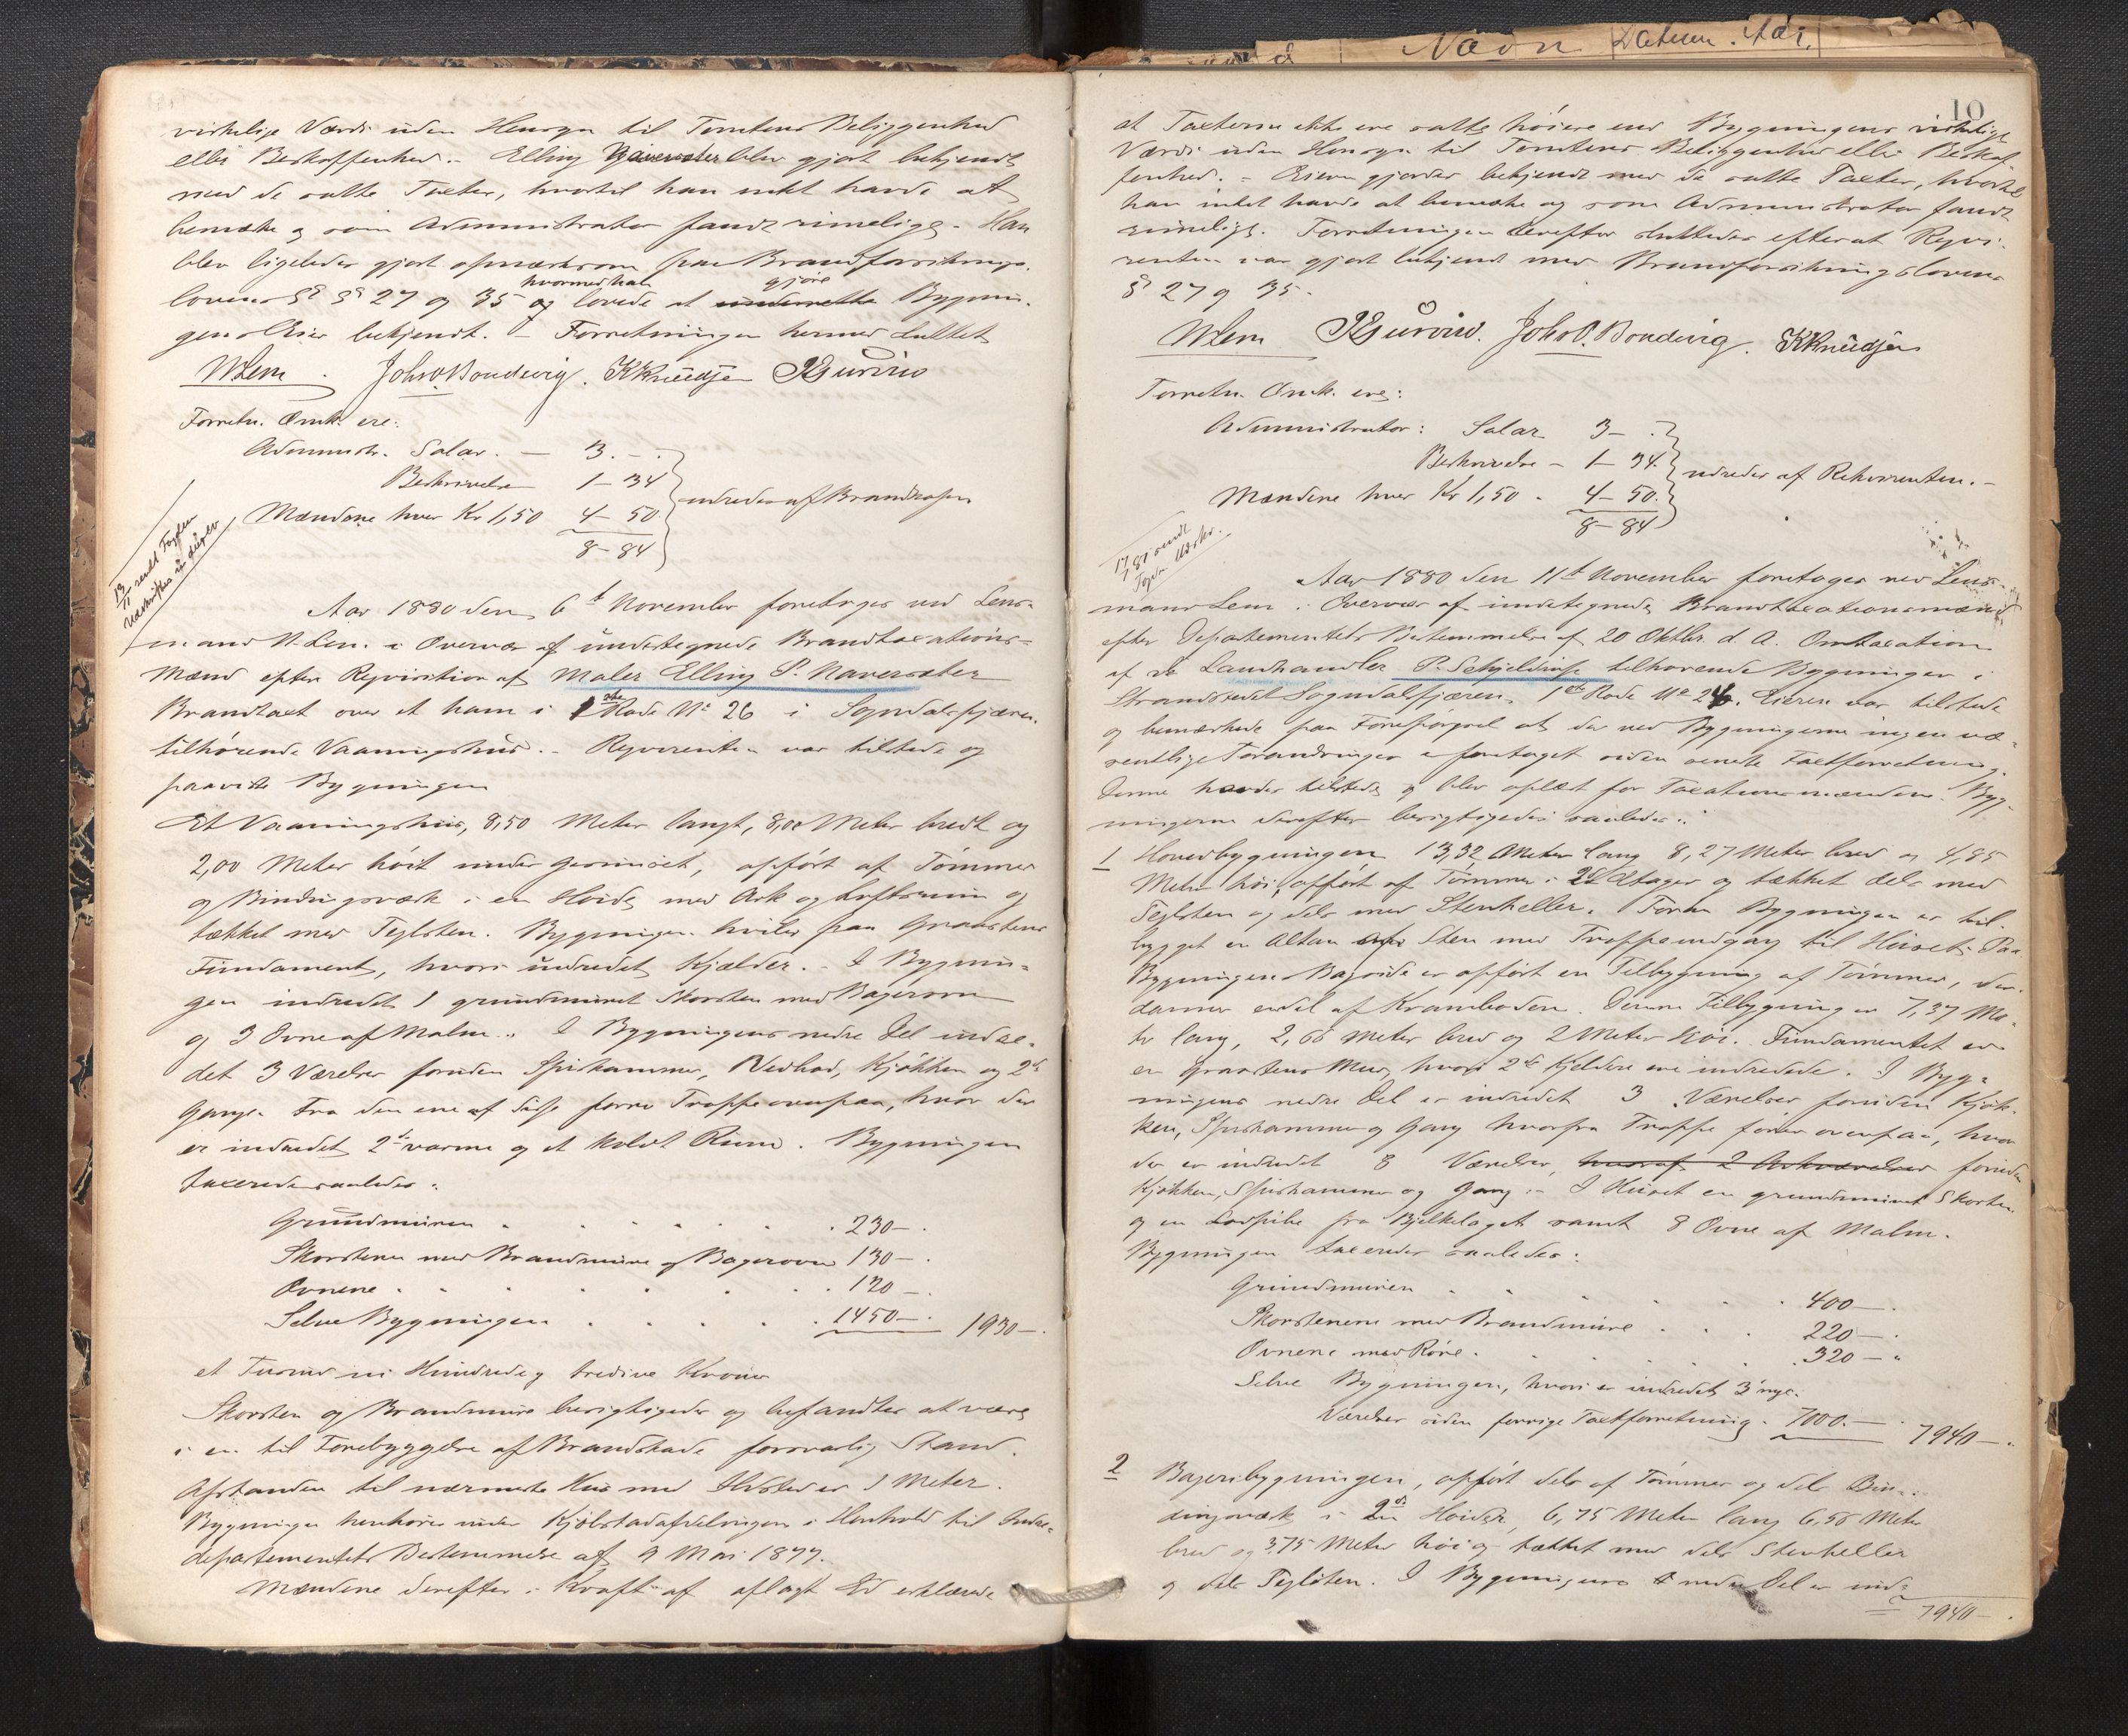 virkelige Værdi uden Hensyn til Tomtens Beliggenhed
eller Beskaffenhed. - Elling Naversæter blev gjort bekjendt
med de satte Taxter, hvortil han intet havde at
bemærke og som Administrator fandt rimelige. - Han
blev ligeledes gjort opmærksom paa Brandforsikrings-
hvormed han gjøre
lovens §§ 27 og 35 og lovede at underrette Bygnin-
gens Eier bekjendt. - Forretningen hermed sluttet
N Lem. Joh. O. Bondevig. K Knudsen
Forretn. Omk. ere:
Administr. Salær. - 3. - .
Beskrivelse 1 - 34
Mændene hver Kr 1,50 4 - 50
udredes af Brandkassen
8 - 84
13/11 sendt Fogden
Udskriften in duplo
Aar 1880 den 6t November foretoges ved Lens-
mand N. Lem i Overvær af undertegnede Brandtaxations-
mænd efter Reqvisition af Maler Elling P. Naversæter
Brandtaxt over et ham i 1ste Rode No 26 i Sogndalsfjæren
tilhørende Vaaningshus. - Reqvirenten var tilstede og
paaviste Bygningen
Et Vaaningshus, 8,50 Meter langt, 8,00 Meter bredt og
2,00 Meter høit under Gesimset, opført af Tømmer
og Bindingsværk i en Høide med Ark og Loftsrum og
tækket med Teglsten. Bygningen hviler paa Graastens
Fundament, hvori indredet Kjælder. - I Bygnin-
gen indredet 1 grundmuret Skorsten med Bagerovn
og 3 Ovne af Malm. I Bygningens nedre Del indre-
det 3 Værelser foruden Spiskammer, Vedbod, Kjøkken og 2de
Gange. Fra den ene af disse fører Trappe ovenpaa, hvor der
er indredet 2de varme og et koldt Rum. Bygningen
taxeredes saaledes:
Grundmuren 230 - .
Skorstenen med Brandmure og Bagerovn 130 - .
Ovnene 120 - .
Selve Bygningen 1450 - . 1930 - .
et Tusind ni Hundrede og tredive Kroner
Skorsten og Brandmure besigtigedes og befandtes at være
i en til Forebyggelse af Brandskade forsvarlig Stand.
Afstanden til nærmeste Hus med Ildsted er 1 Meter.
Bygningen henhører under Kjøbstadafdelingen i Henhold til Indre-
departementets Bestemmelse af 9 Mai 1877.
Mændene derefter i Kraft af aflagt Ed erklærede
10
at Taxterne ikke ere satte høiere end Bygningens virkelige
Værdi uden Hensyn til Tomtens Beliggenhed eller Beskaf-
fenhed. - Eieren gjordes bekjendt med de satte Taxter, hvortil
han intet havde at bemærke og som Administrator fandt
rimelige. Forretningen derefter sluttedes efterat Reqvi-
renten var gjort bekjendt med Brandforsikringslovens
§§ 27 og 35.
N Lem Joh. O. Bondevig. K Knudsen
Forretn. Omk. ere:
Administrator: Salær 3 - .
Beskrivelse - 1 - 34.
Mændene hver Kr 1,50 - 4 - 50.
udredes af Rekvirenten. -
8 - 84
Aar 1880 den 11te November foretoges ved Lens-
mand Lem i Overvær af undertegnede Brandtaxationsmænd
efter Departementets Bestemmelse af 20 Oktbr. d. A. Omtaxation
af de Landhandler P. Schjelderup tilhørende Bygninger i
Strandstedet Sogndalsfjæren, 1ste Rode No 24. Eieren var tilstede
og bemærkede paa Forespørgsel at der ved Bygningerne ingen væ-
sentlige Forandringer er foretaget siden seneste Taxtforretning.
Denne havdes tilstede og blev oplæst for Taxationsmændene. Byg-
ningerne derefter besigtigedes saaledes:
1 Hovedbygningen 13,32 Meter lang 8,27 Meter bred og 4,85
Meter høi, opført af Tømmer i 2de Etager og tækket dels med
Teglsten og dels med Stenheller. Foran Bygningen er til-
bygget en Altan af Sten med Trappeindgang til Huset. Paa
Bygningens Bagside er opført en Tilbygning af Tømmer, der
danner endel af Kramboden. Denne Tilbygning er 7,37 Me-
ter lang, 2,66 Meter bred og 2 Meter høi. Fundamentet er
en Graastens Mur, hvori 2de Kjeldere ere indredede. I Byg-
ningens nedre Del er indredet 3 Værelser foruden Kjøk-
ken, Spiskammer og Gang hvorfra Trappe fører ovenpaa, hvor
der er indredet 8 Værelser, hvoraf 2 Arkværelser foruden
Kjøkken, Spiskammer og Gang. - I Huset en grundmuret Skorsten
og en Lodpibe fra Bjelkelaget samt 8 Ovne af Malm.
Bygningen taxeredes saaledes:
Grundmuren 400 - .
Skorstenene med Brandmure 220 - .
Ovnene med Røre 320 - .
Selve Bygningen, hvori er indredet 3 nye
Værelser siden forrige Taxtforretning. 7000. - 7940 - .
2 Bageribygningen, opført dels af Tømmer og dels Bin-
dingsværk i 2de Høider, 6,75 Meter lang 6,58 Meter
bred og 3,75 Meter høi og tækket med dels Stenheller
og dels Teglsten. I Bygningens nedre Del er ind-
7940 - .
Navn Datum. Aar.